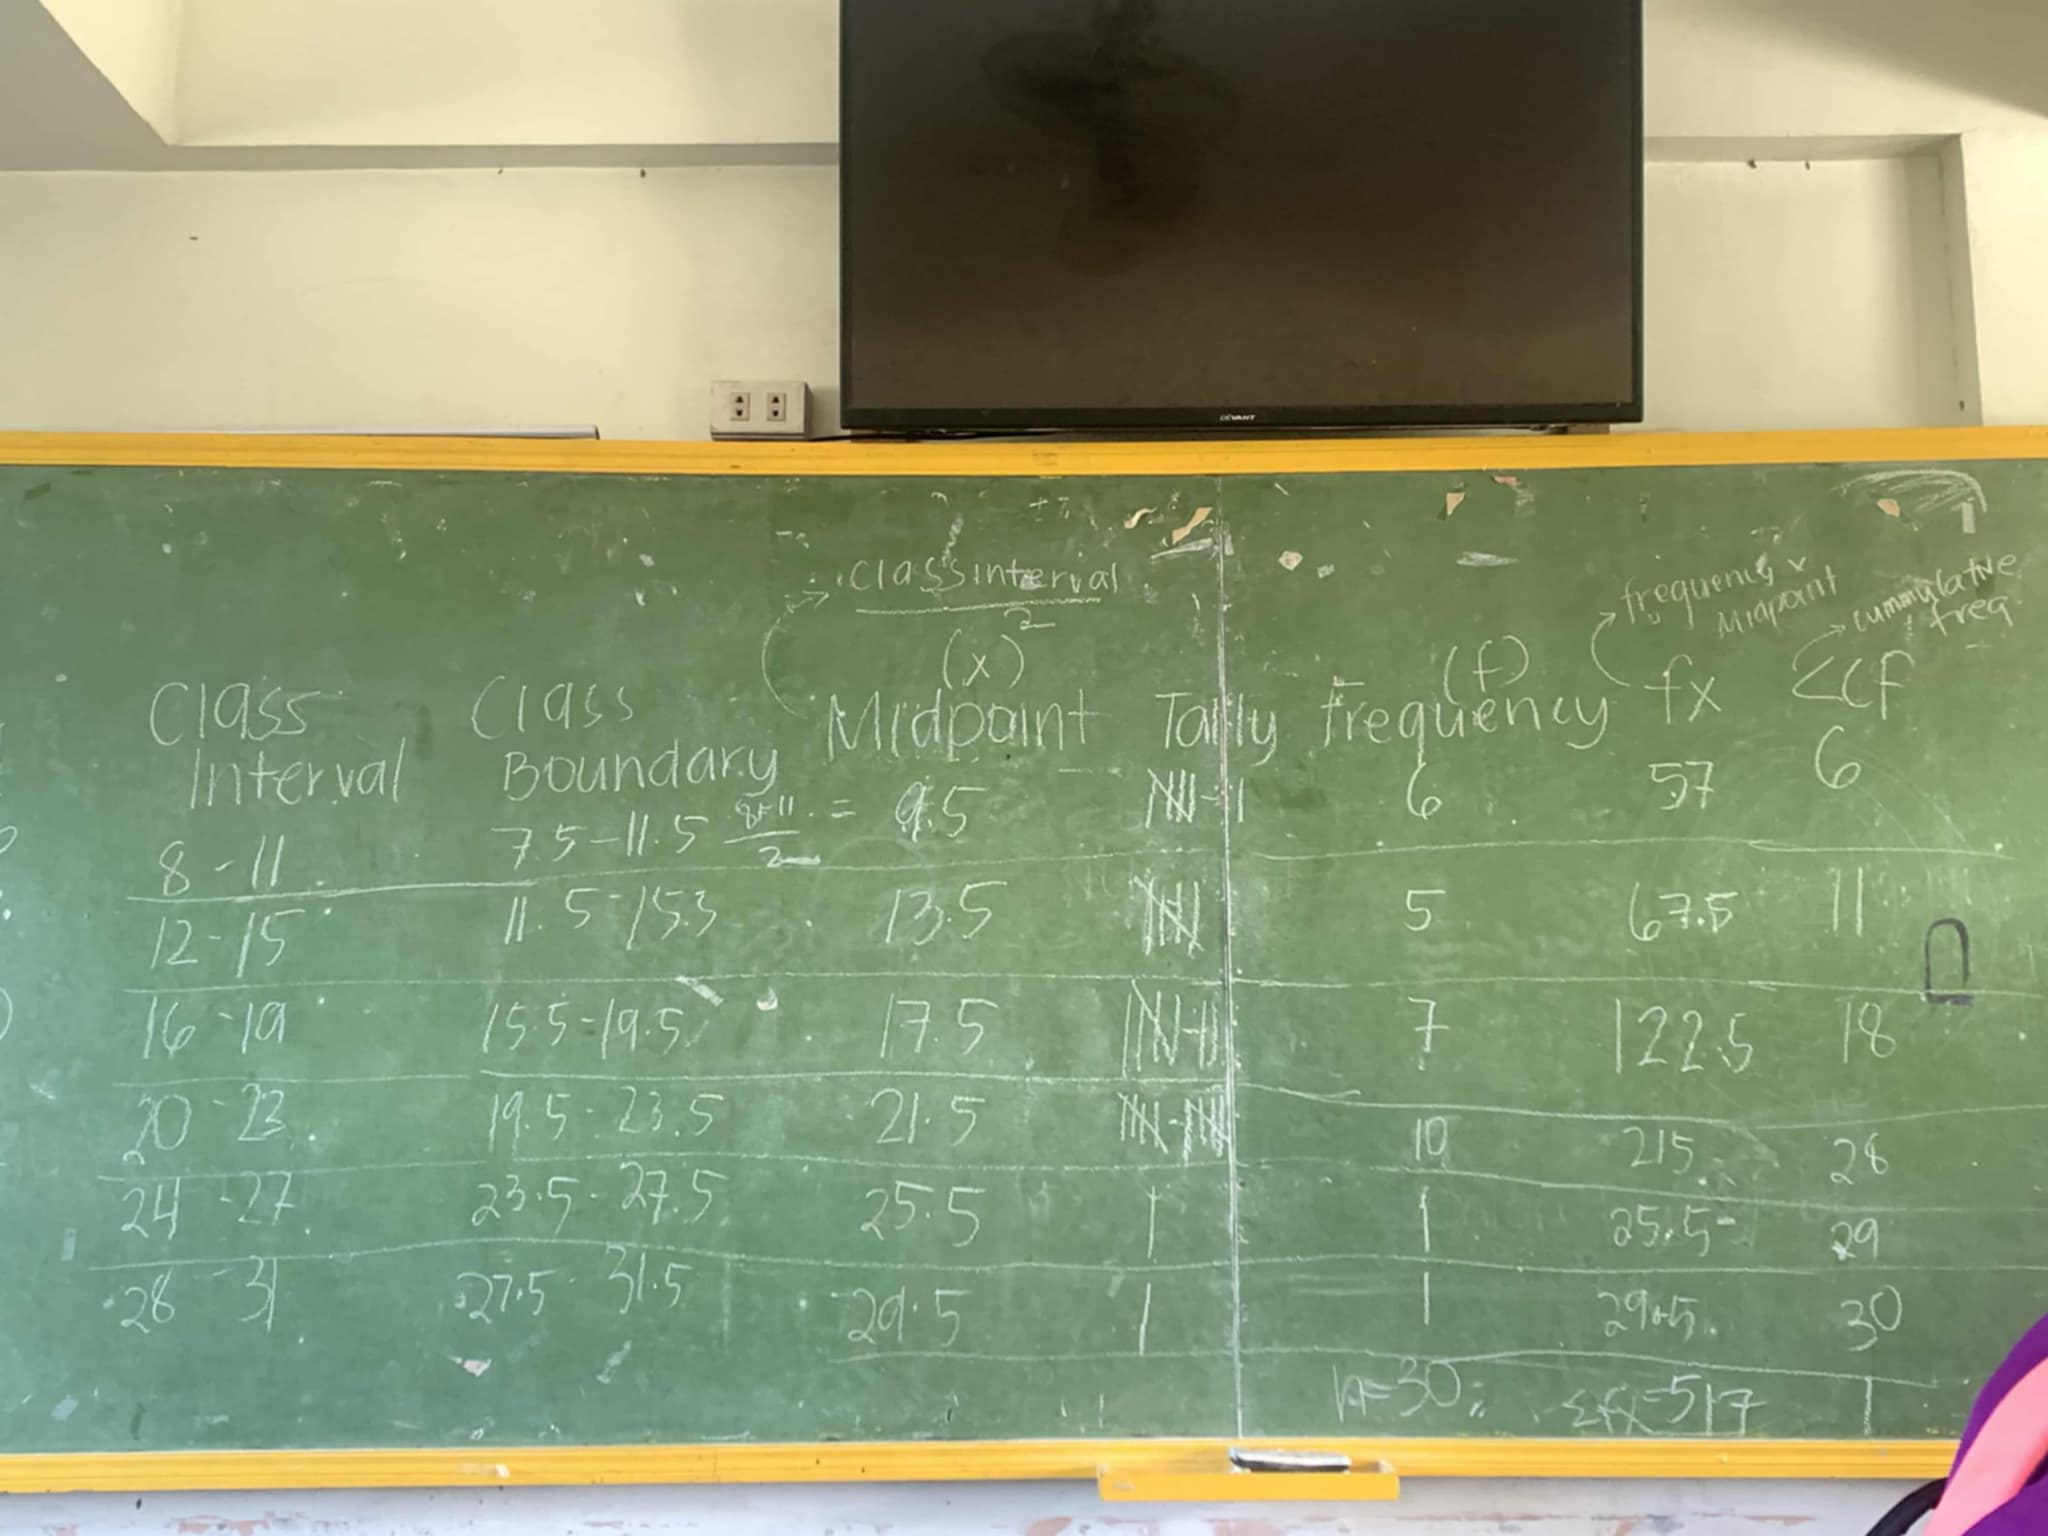 DEVANT
class interval
2
frequency x
Midpoint
cummulative
freq.
(x)
(f)
Class
Interval
Class
Boundary
Midpoint
Tally
frequency
fx
Σcf
8 - 11
7.5 - 11.5
8+11
2
= 9.5
6
57
6
12 - 15
11.5 - 15.3
13.5
5
67.5
11
16 - 19
15.5 - 19.5
17.5
7
122.5
18
20 - 23
19.5 - 23.5
21.5
10
215
28
24 - 27
23.5 - 27.5
25.5
1
25.5
29
28 - 31
27.5 - 31.5
29.5
1
29.5
30
n=30
Σfx=517